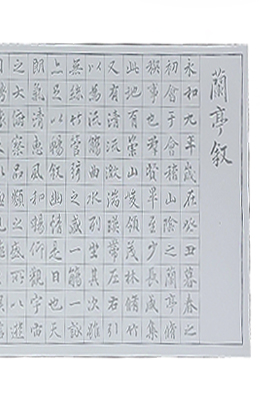 蘭亭叙
永和九年歲在癸丑暮春之
初會于會稽山陰之蘭亭脩
禊事也群賢畢至少長咸集
此地有崇山峻領茂林脩竹
又有清流激湍暎帶左右引
以為流觴曲水列坐其次雖
無絲竹管弦之盛一觴一詠
亦足以暢叙幽情是日也天
朗氣清惠風和暢仰觀宇宙
之大俯察品類之盛所以遊